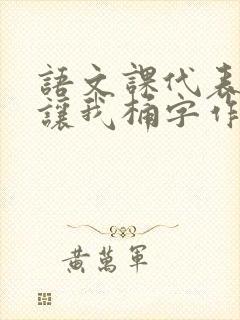 語文課代表
讓我桶字作
黃萬軍